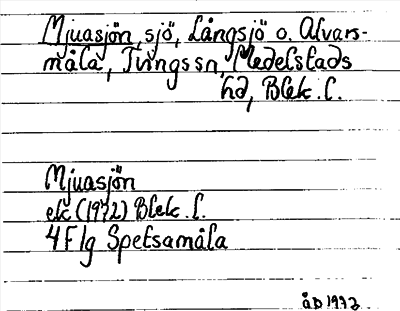 Mjuasjön, sjö, Långsjö o. Alvars-
måla, Tvingssn, Medelstads
hd, Blek. l.
Mjuasjön
ek (1972) Blek. l.
4 F 1g Spetsamåla
ÅD 1992